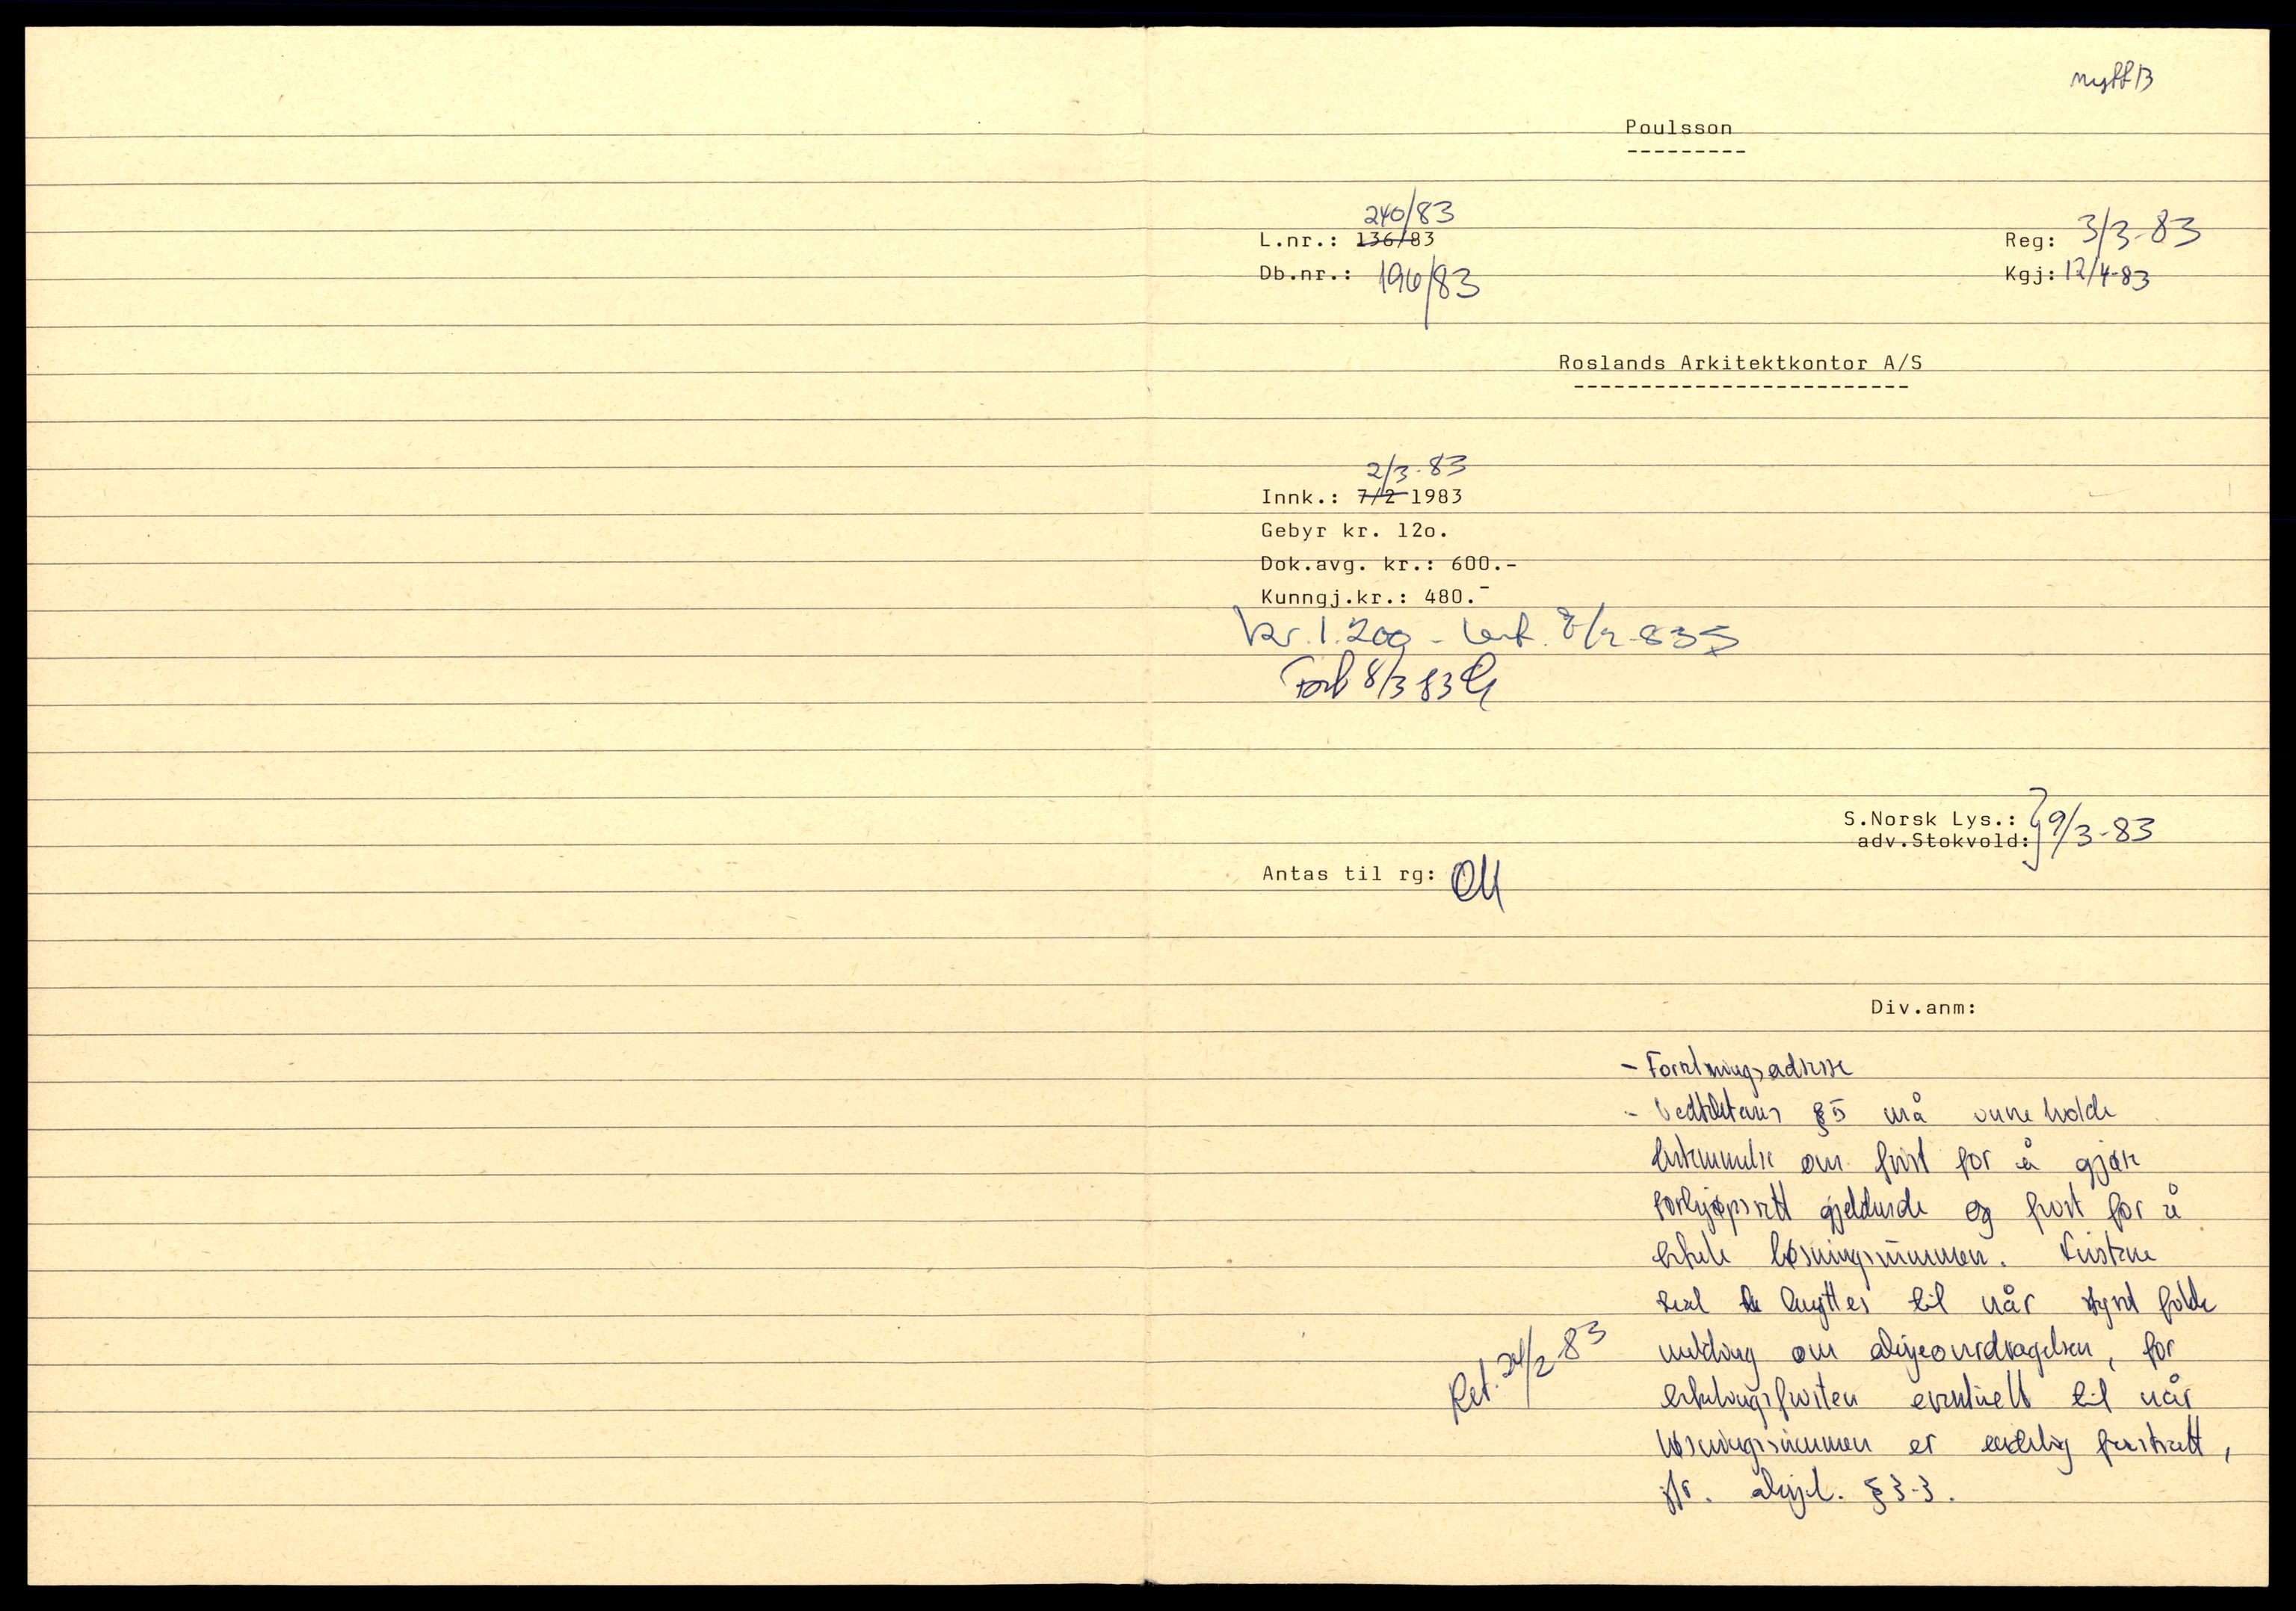 nytt B
Poulsson
---------
240/83
L.nr.: 136/83
Reg: 3/3-83
Db.nr.: 196/83
Kgj: 12/4-83
Roslands Arkitektkontor A/S
------------------------
2/3-83
Innk.: 7/2 1983
Gebyr kr. 12o.
Dok.avg. kr.: 600.-
Kunngj.kr.: 480.-
kr. 1.200 -
8/3 83
S.Norsk Lys.: } 9/3-83
adv.Stokvold:
Antas til rg: OK
Div.anm:
- Forretningsadresse
- Vedtektenes §5 må inneholde
bestemmelse om frist for å gjøre
forkjøpsrett gjeldende og frist for å
betale løsningssummen. Fristene
skal knyttes til når styret fikk
melding om aksjeoverdragelsen, for
Ret. 24/2-83
betalingsfristen eventuelt til når
løsningssummen er endelig fastsatt,
jfr. aksjel. §3-3.